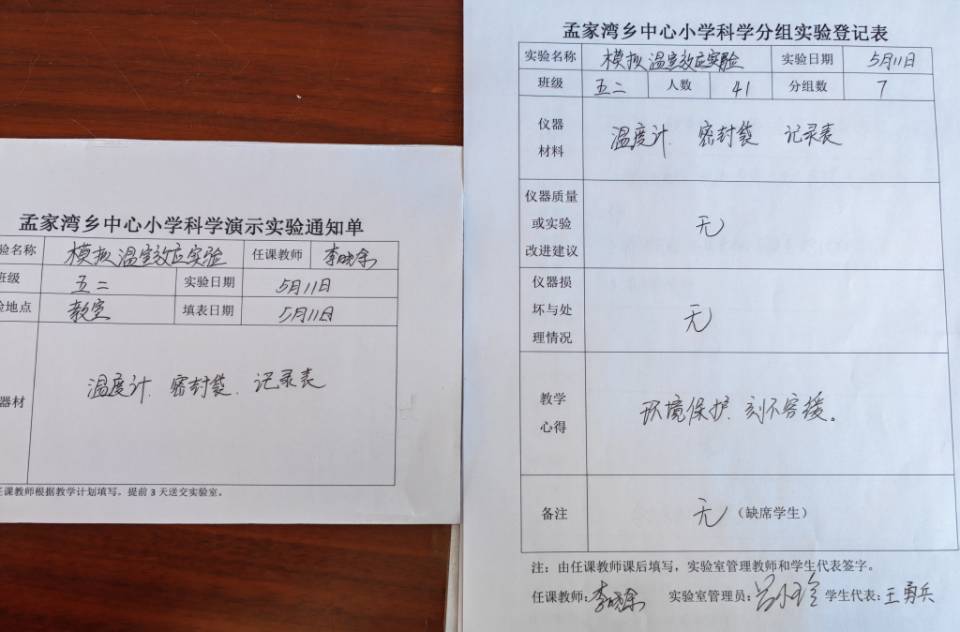 孟家湾乡中心小学科学演示实验通知单
验名称 模拟温室效应实验 任课教师
班级 五二 实验日期 5月11日
验地点 教室 填表日期 5月11日
器材 温度计、密封袋、记录表
任课教师根据教学计划填写，提前3天送交实验室。
孟家湾乡中心小学科学分组实验登记表
实验名称 模拟温室效应实验 实验日期 5月11日
班级 五二 人数 41 分组数 7
仪器
材料
温度计 密封袋 记录表
仪器质量
或实验
改进建议
无
仪器损
坏与处
理情况
无
教学
心得
环境保护、刻不容缓。
备注 无（缺席学生）
注：由任课教师课后填写，实验室管理教师和学生代表签字。
任课教师： 实验室管理员： 学生代表：王勇兵